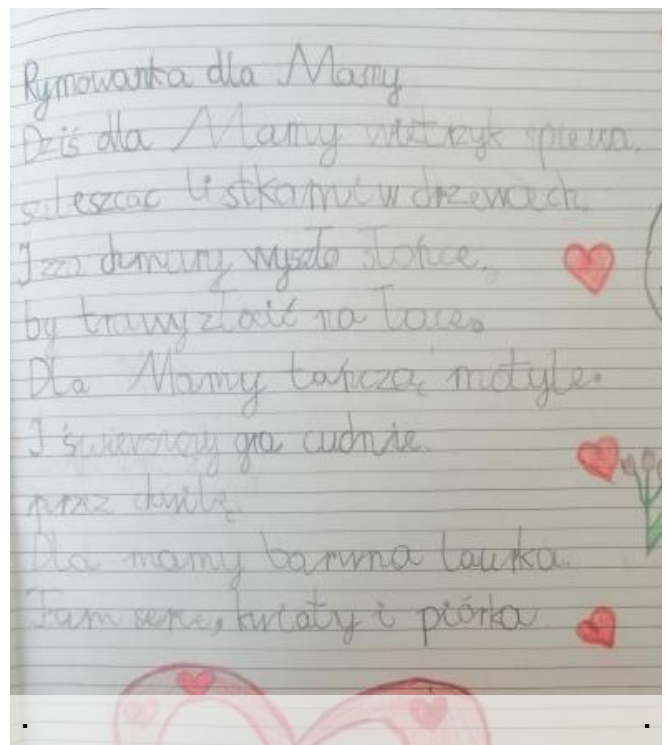 Rymowanka dla Mamy
Dziś dla Mamy wietrzyk śpiewa.
szeleszcąc listkami w drzewach.
I zza chmury wyszło słońce,
by trawy złocić na łące.
Dla Mamy tańczą motyle.
I świerszczy gra cudnie.
przez chwilę.
Dla mamy barwna laurka.
Tam serce, kwiaty i piórka